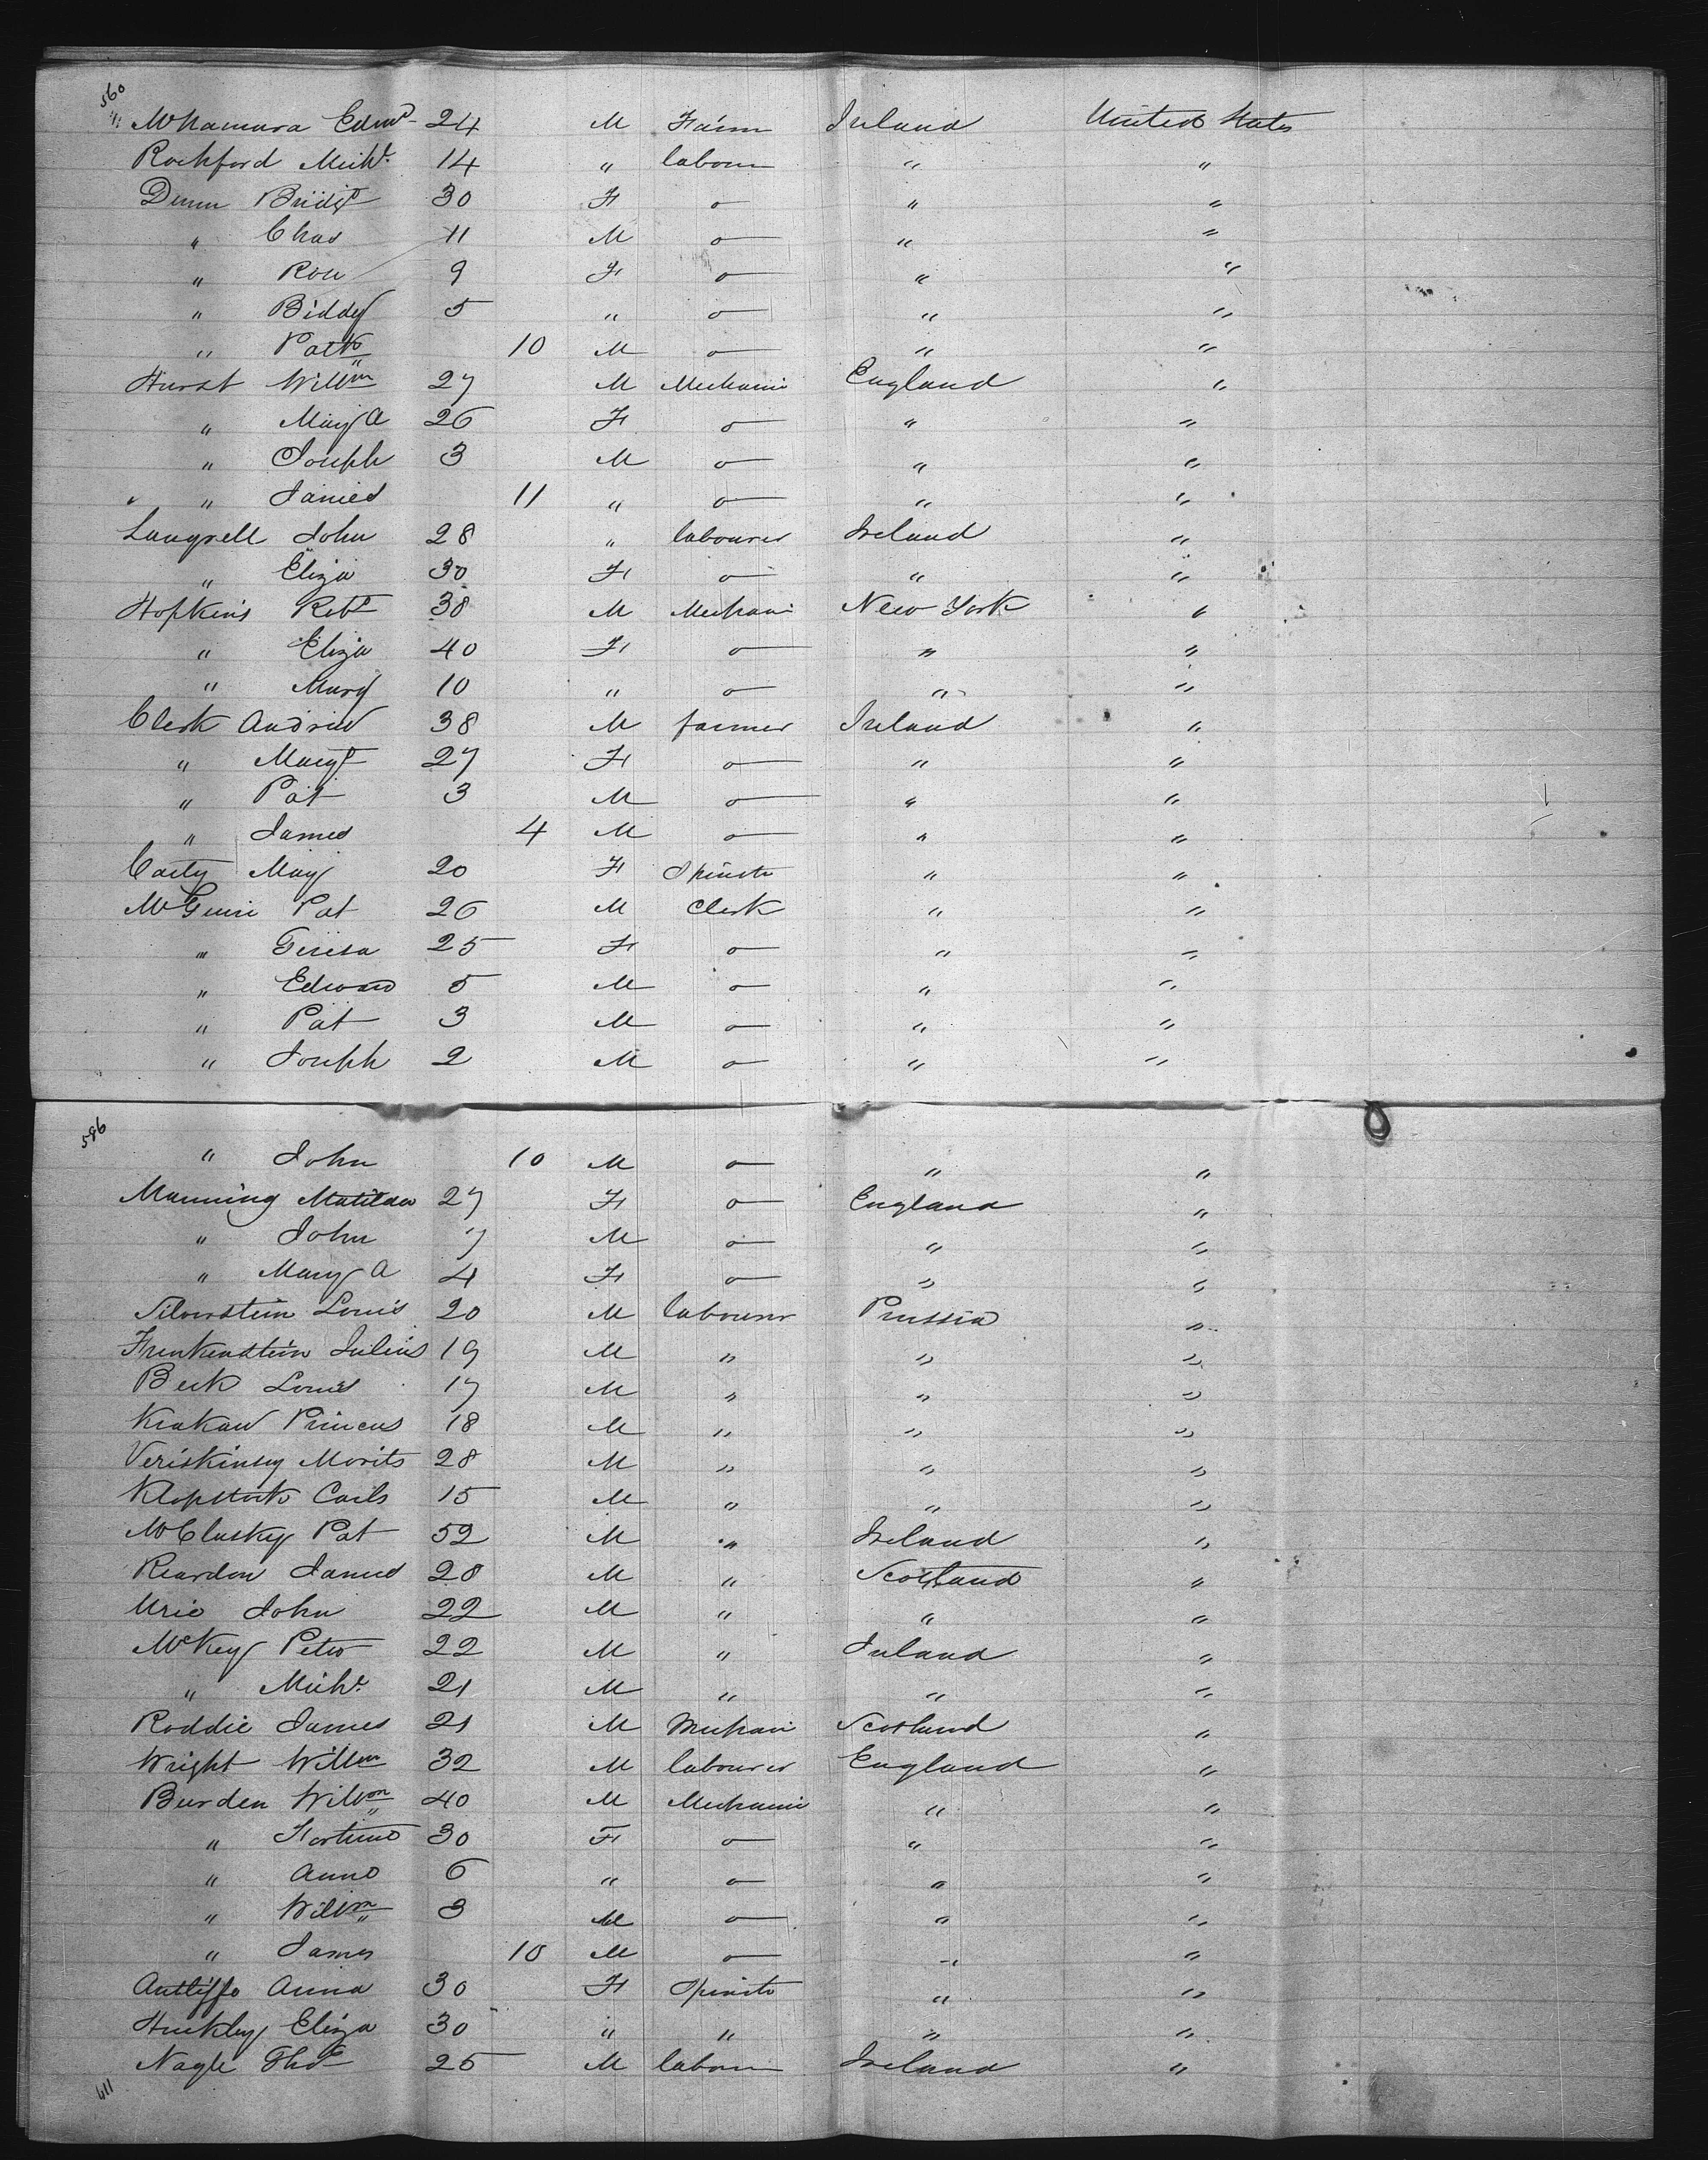 560
" McNamara Edmd 24 M Farm Ireland United States
Rochford Michl 14 " labour " "
Dunn Bridgt 30 F o " "
" Chas 11 M o " "
" Rose 9 F o " "
" Biddy 5 " o " "
" Patk 10 M o " "
Hurst Willm 27 M Mechanic England "
" Mary A 26 F o " "
" Joseph 3 M o " "
" James 11 " o " "
Langrell John 28 " labourer Ireland "
" Eliza 30 F o " "
Hopkins Robt 38 M Mechani New York "
" Eliza 40 F o " "
" Mary 10 " o " "
Clerk Andrew 38 M farmer Ireland "
" Margt 27 F o " "
" Pat 3 M o " "
" James 4 M o " "
Carty Mary 20 F Spinster " "
McGuire Pat 26 M Clerk " "
" Teresa 25 F o " "
" Edward 5 M o " "
" Pat 3 M o " "
" Joseph 2 M o " "
586
" John 10 M o " "
Manning Matilda 27 F o England "
" John 7 M o " "
" Mary A 4 F o " "
Silverstein Louis 20 M labourer Prussia "
Frenkenstein Julius 19 M " " "
Beck Louis 17 M " " "
Krakau Princus 18 M " " "
Veriskinsy Morits 28 M " " "
Klopstock Carls 15 M " " "
McClusky Pat 52 M " Ireland "
Reardon James 28 M " Scotland "
Urie John 22 M " " "
McKey Peter 22 M " Ireland "
" Michl 21 M " " "
Roddie James 21 M Mechani Scotland "
Wright Willm 32 M labourer England "
Burden Willm 40 M Mechanic " "
" Fortune 30 F o " "
" Anne 6 " o " "
" Willm 3 M o " "
" James 10 M o " "
Antliffe Anna 30 F Spinster " "
Huckley Eliza 30 " " " "
Nagle Thos 25 M labour Ireland "
611